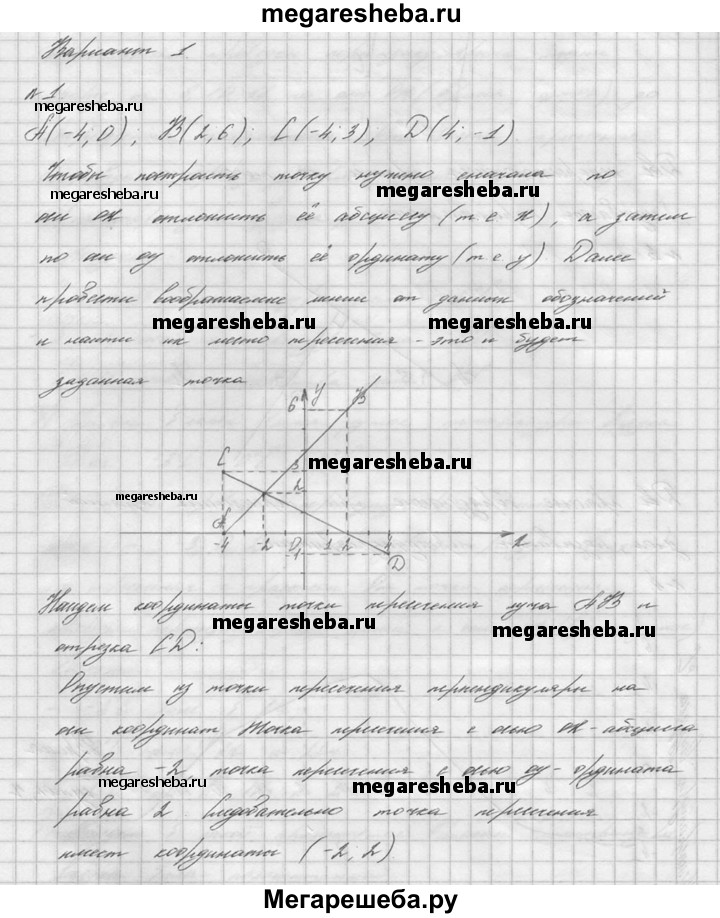 megaresheba.ru
Вариант 1
№1
megaresheba.ru
A(-4; 0); B(2; 6); C(-4; 3), D(4; -1)
Чтобы построить точку нужно сначала по
megaresheba.ru
megaresheba.ru
оси ox отложить её абсциссу (т.е. x), а затем
по оси oy отложить её ординату (т.е. y). Далее
провести воображаемые линии от данных обозначений
megaresheba.ru
megaresheba.ru
и найти их место пересечения - это и будет
заданная точка
6 y B
C 3
megaresheba.ru
2
megaresheba.ru
A
-4 -2 0 1 2 4 x
-1 D
Найдем координаты точки пересечения луча AB и
megaresheba.ru
megaresheba.ru
отрезка CD:
Опустим из точки пересечения перпендикуляры на
оси координат. Точка пересечения с осью ox - абсцисса
равна -2, точка пересечения с осью oy - ордината
megaresheba.ru
megaresheba.ru
равна 2. Следовательно точка пересечения
имеет координаты (-2; 2).
Мегарешеба.ру